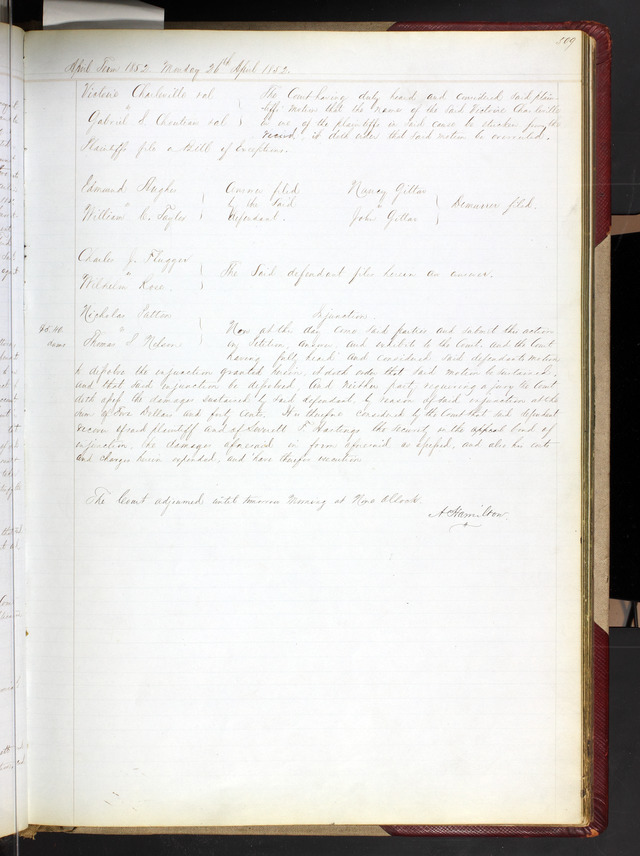 509
April Term 1852. Monday 26th April 1852.
Victoire Charleville et al
"
Gabriel S. Chouteau et al
The Court having duly heard and considered said plain-
tiffs motion that the name of the said Victoire Charleville
as one of the plaintiffs in said cause be stricken from the
record, it doth order that said motion be overruled.
Plaintiffs file a Bill of Exceptions.
Edmund Hughes
"
William C. Taylor
Answer filed
by the said
Defendant.
Nancy Gittar
"
John Gittar
Demurrer filed.
Charles J. Flugger
"
Wilhelm Rose
The said defendant files herein an answer.
Nicholas Patton
"
Thomas S. Nelson
Injunction.
$5.40
dams
Now at this day come said parties and submit this action
on Petition, answer, and exhibits to the Court, and the Court
having fully heard and considered said defendants motion
to dissolve the injunction granted herein, it doth order that said motion be sustained,
and that said injunction be dissolved, And neither party requiring a jury the Court
doth assess the damages sustained by said defendant, by reason of said injunction at the
sum of Five Dollars and forty cents. It is therefore considered by the Court that said defendant
recover of said plaintiff and of F. Hastings the security in the appeal bond of
injunction, the damages aforesaid in form aforesaid assessed, and also his costs
and charges herein expended, and have thereof execution.
The Court adjourned until tomorrow Morning at Nine O'Clock.
A. Hamilton.